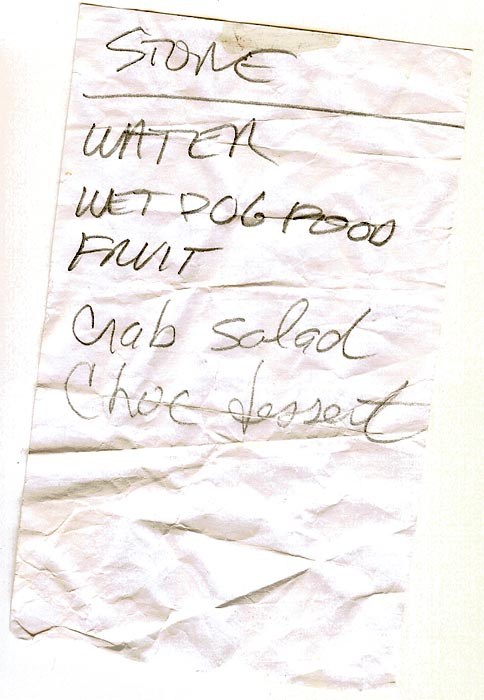 STORE
WATER
WET DOG FOOD
FRUIT
Crab salad
Choc dessert